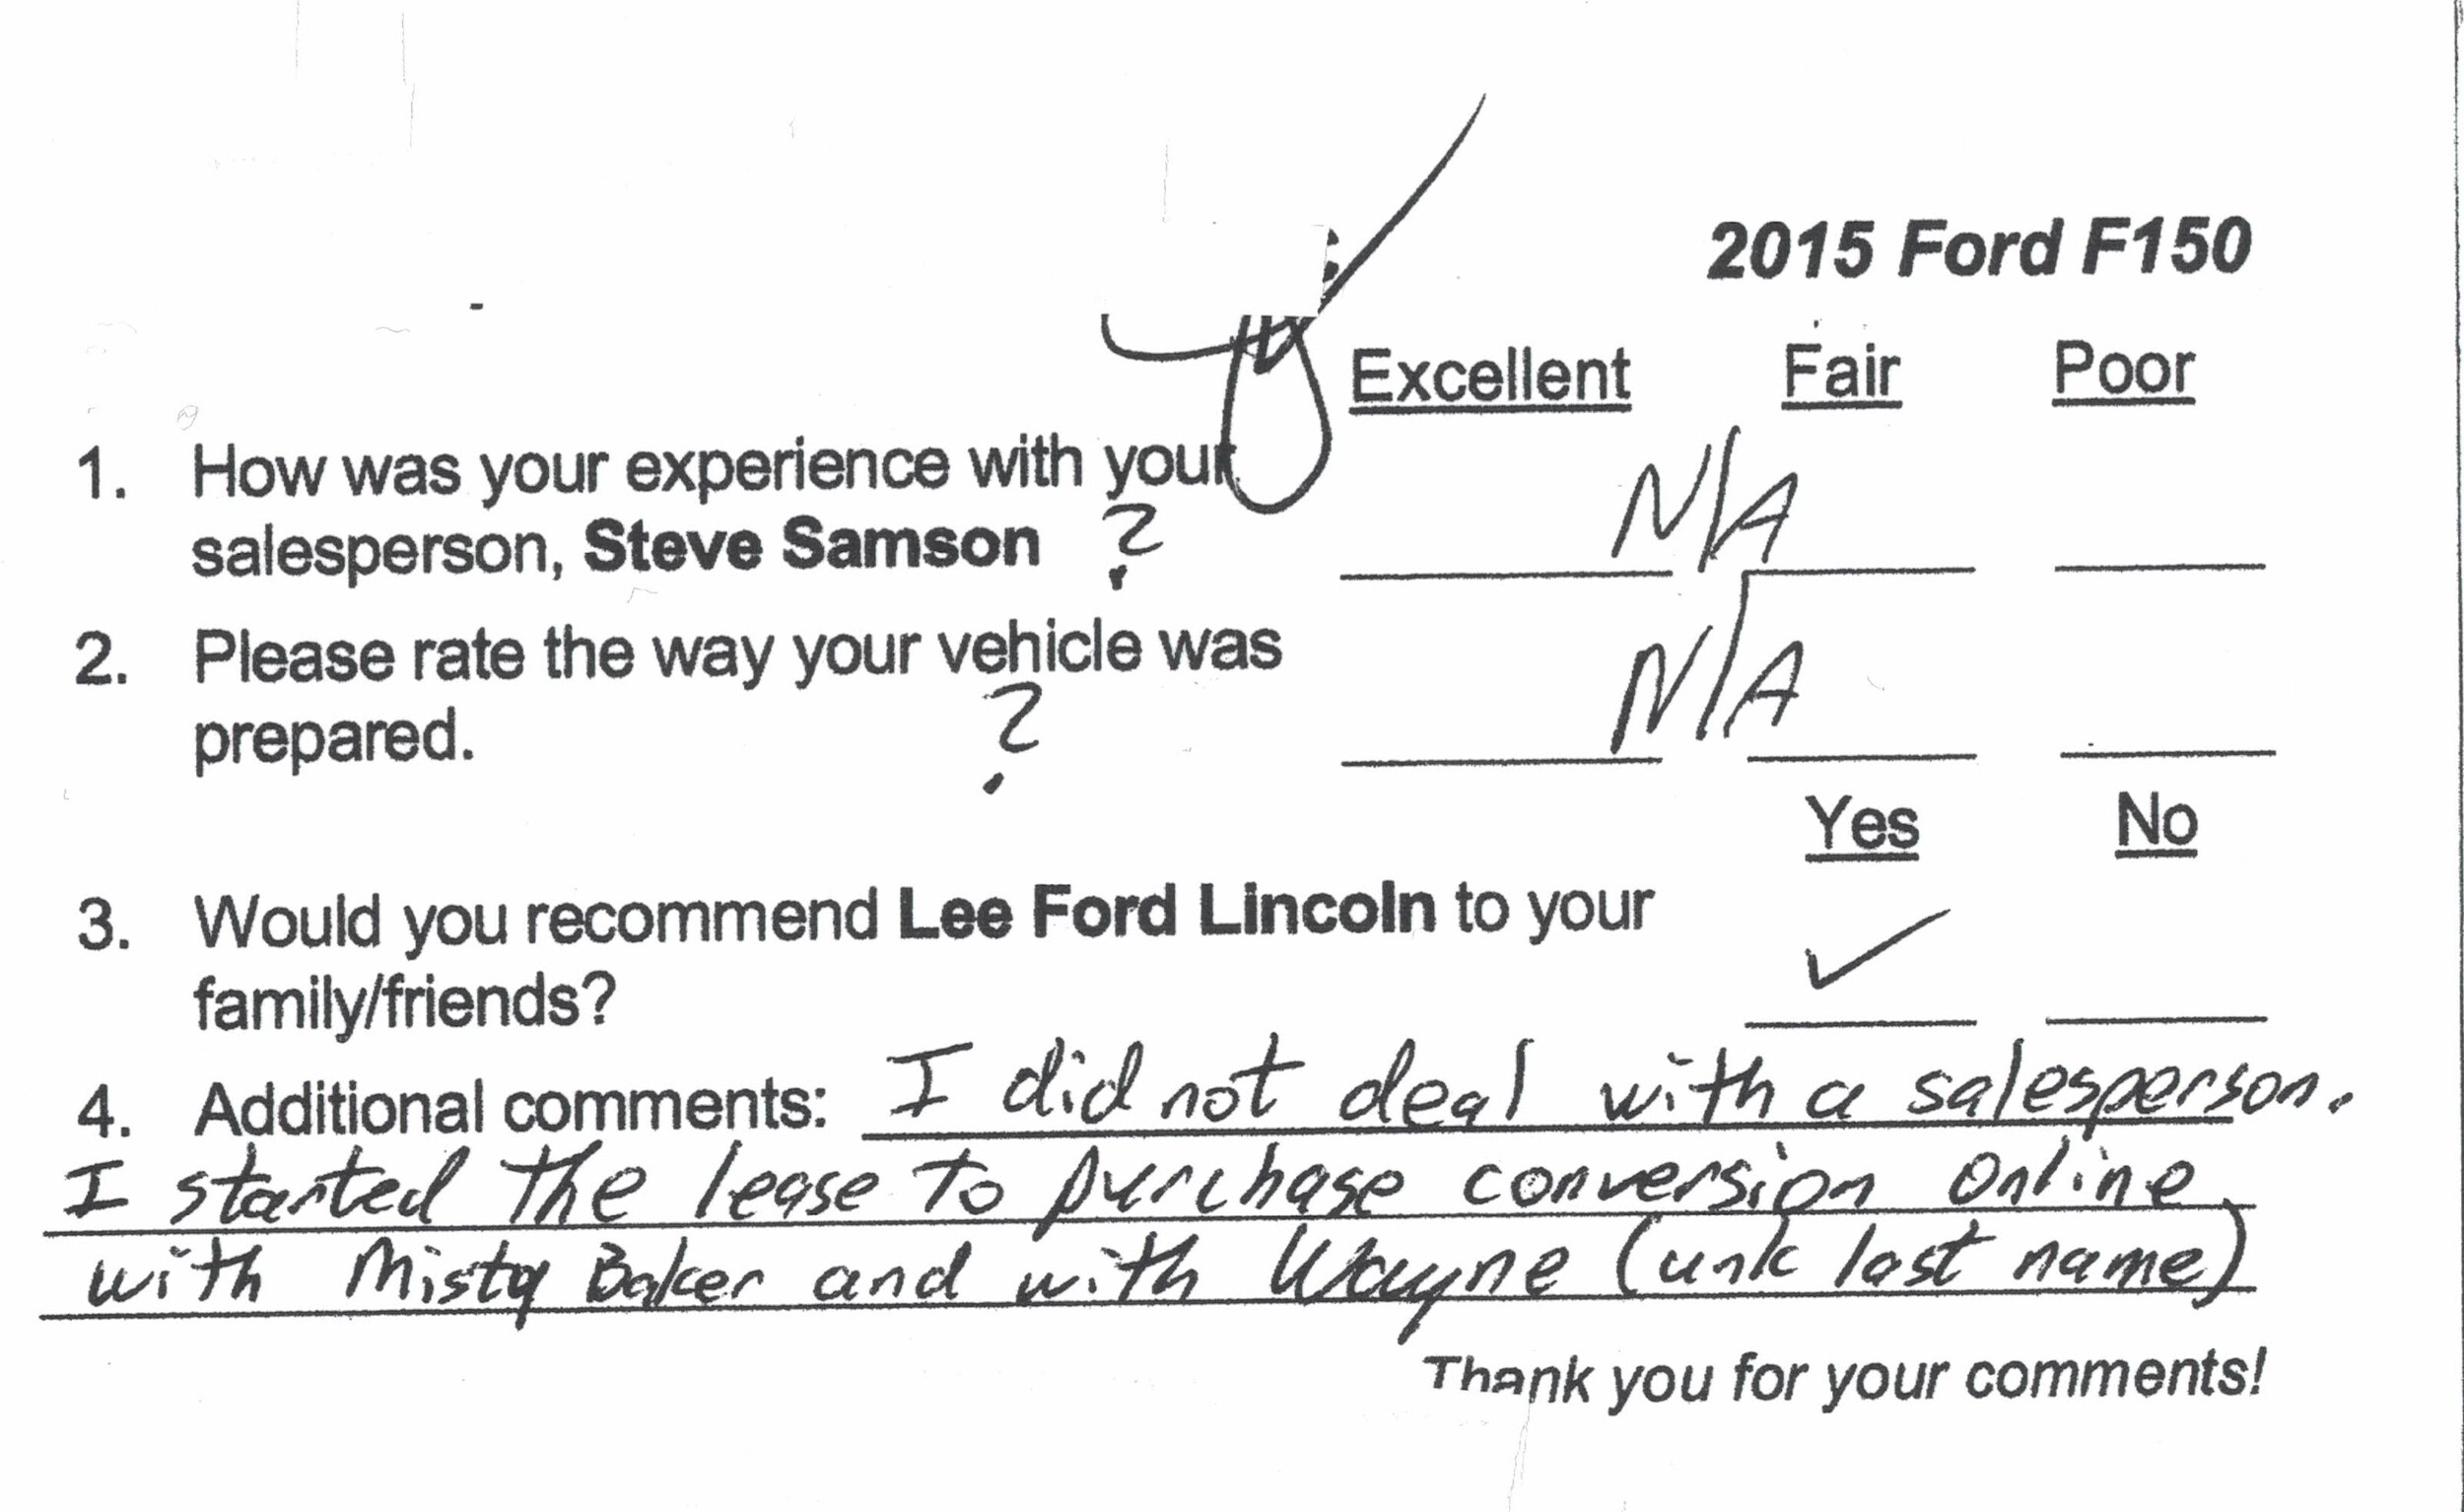 2015 Ford F150
Excellent Fair Poor
1. How was your experience with your
salesperson, Steve Samson ? N/A
2. Please rate the way your vehicle was
prepared. ? N/A
Yes No
3. Would you recommend Lee Ford Lincoln to your
family/friends? ✓
4. Additional comments: I did not deal with a salesperson.
I started the lease to purchase conversion online
with Misty Baker and with Wayne (unk last name)
Thank you for your comments!